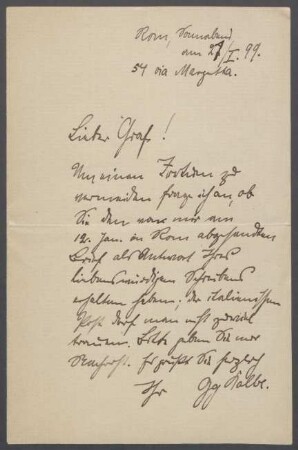 Rom, Sonnabend
am 28/I. 99.
54 via Margutta.
Lieber Graf!
Um einen Irrtum zu
vermeiden frage ich an, ob
Sie den von mir am
12. Jan. in Rom abgesandten
Brief als Antwort Ihres
liebenswürdigen Schreibens
erhalten haben; der italienischen
Post darf man nicht zuviel
trauen. Bitte geben Sie mir
Nachricht. Es grüßt Sie herzlich
Ihr Gg Kolbe.